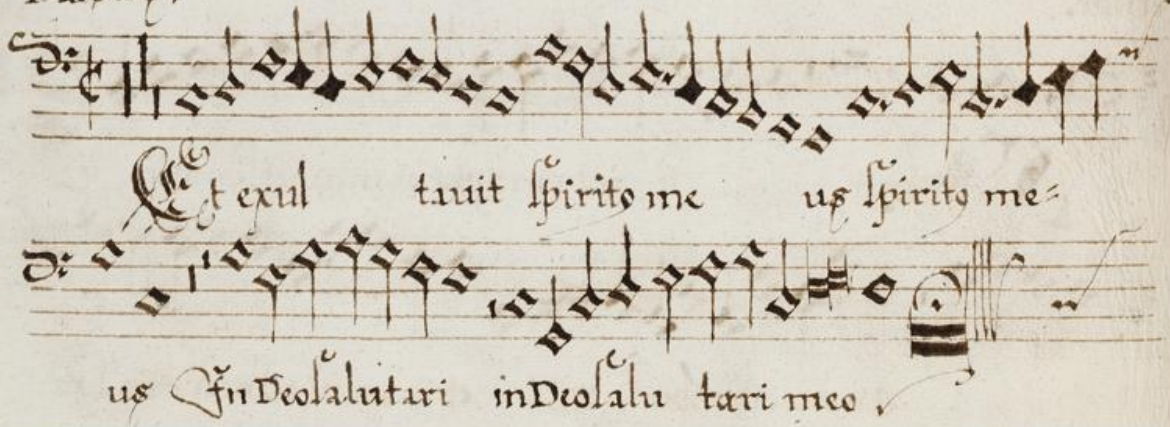 Et exul tauit spirito me us spirito me=
us In Deo salutari in Deo salu tari meo